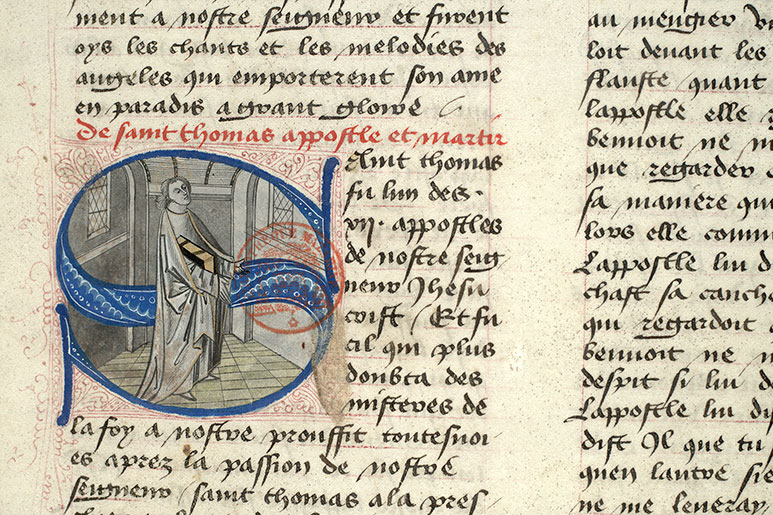 ment a nostre seigneur et furent
oys les chants et les melodies des
angeles qui emporterent son ame
en paradis a grant gloire
De saint thomas appostle et martir
Saint thomas
fu lun des
xii. appostles
de nostre seig
neur Jhesu
crist Et fu
cil qui plus
doubta des
misteres de
la foy a nostre prouffit toutesuoi
es aprez la passion de nostre
seigneur saint thomas ala pres
au mengier
loit deuant les
flauste quant
lappostle elle
bennoit ne
que regarder
sa maniere
lors elle
Lappostle lui
chast sa
qui regardoit
bennoit ne
despit si lui
Lappostle lui
dist Il que tu
quen lautre
ne me leueray